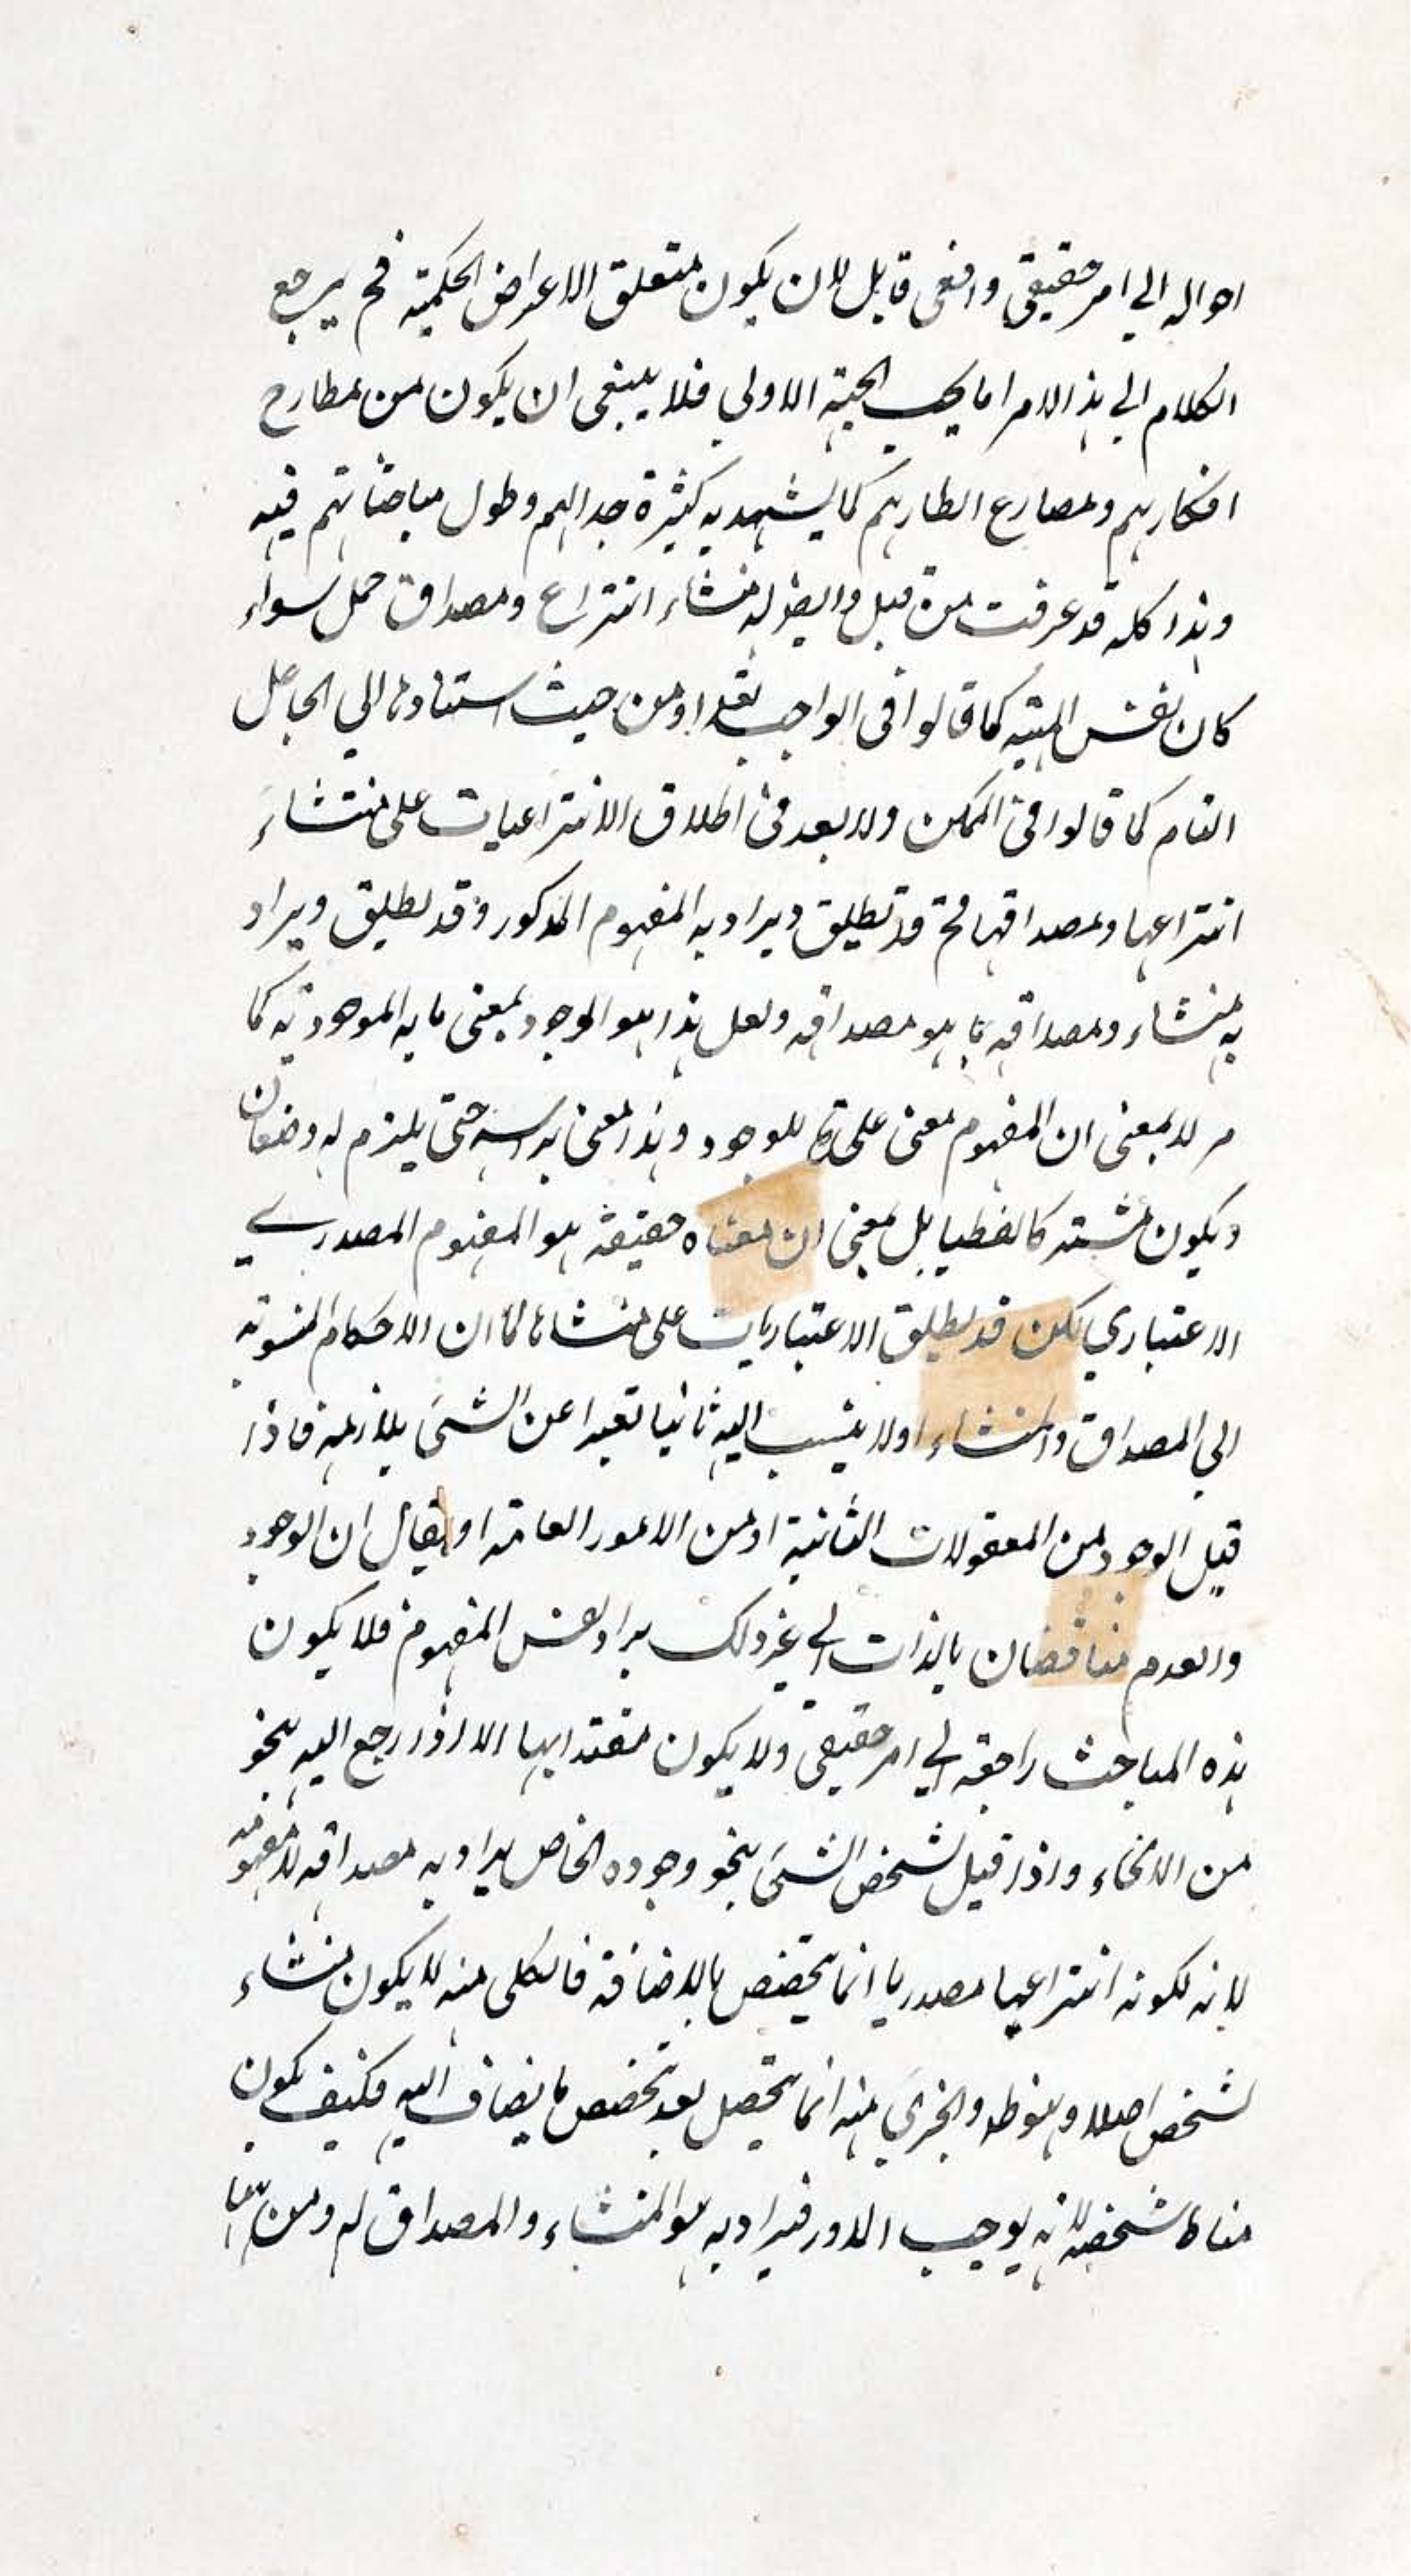 احواله الي امر حقيقي واقعى قابل لان يكون متعلق الاعراض الحكمية فح يرجع
الكلام الي هذا الامر اما بحسب الجهة الاولي فلا ينبغى ان يكون من مطارح
افكارهم ومصارع انظارهم كما يشهد به كثرة جدالهم وطول مباحثاتهم فيه
وهذا كله قد عرفت من قبل وايضا له منشاء انتزاع ومصداق حمل سواء
كان نفس المهية كما قالوا فى الواجب تعم او من حيث استنادها الي الجاعل
التام كما قالوا في الممكن ولا بعد في اطلاق الانتزاعيات على منشاء
انتزاعها ومصداقها فح قد تطلق ويراد به المفهوم المذكور وقد يطلق ويراد
به منشاء ومصداقه بما هو مصداقه ولعل هذا هو الوجود بمعنى ما به الموجودية كما
مر لا بمعنى ان المفهوم معنى على للوجود وهذا معنى براسه حتى يلزم له وضعان
ويكون مشتركا لفظيا بل بمعنى ان معناه حقيقة هو المفهوم المصدري
الاعتباري لكن قد يطلق الاعتباريات على منشاها كما ان الاحكام المنسوبة
الي المصداق والمنشاء اولا ينسب اليه ثانيا تعبيرا عن الشئ بلازمه فاذا
قيل الوجود من المعقولات الثانية او من الامور العامة او يقال ان الوجود
والعدم متناقضان بالذات الي غير ذلك يراد نفس المفهوم فلا يكون
هذه المباحث راجعة الي امر حقيقي ولا يكون معتدا بها الا اذا رجع اليه بنحو
من الانحاء واذا قيل تشخص الشئ بنحو وجوده الخاص يراد به مصداقه لا مفهومه
لانه لكونه انتزاعيا مصدريا انما يتخصص بالاضافة فالكلى منه لا يكون منشاء
لتشخص اصلا وهو ظ والجزئي منه انما يتحصل بعد تخصص ما يضاف اليه فكيف يكون
مناط تشخصه لانه يوجب الدور فيراد به هو المنشاء والمصداق له ومن ههنا